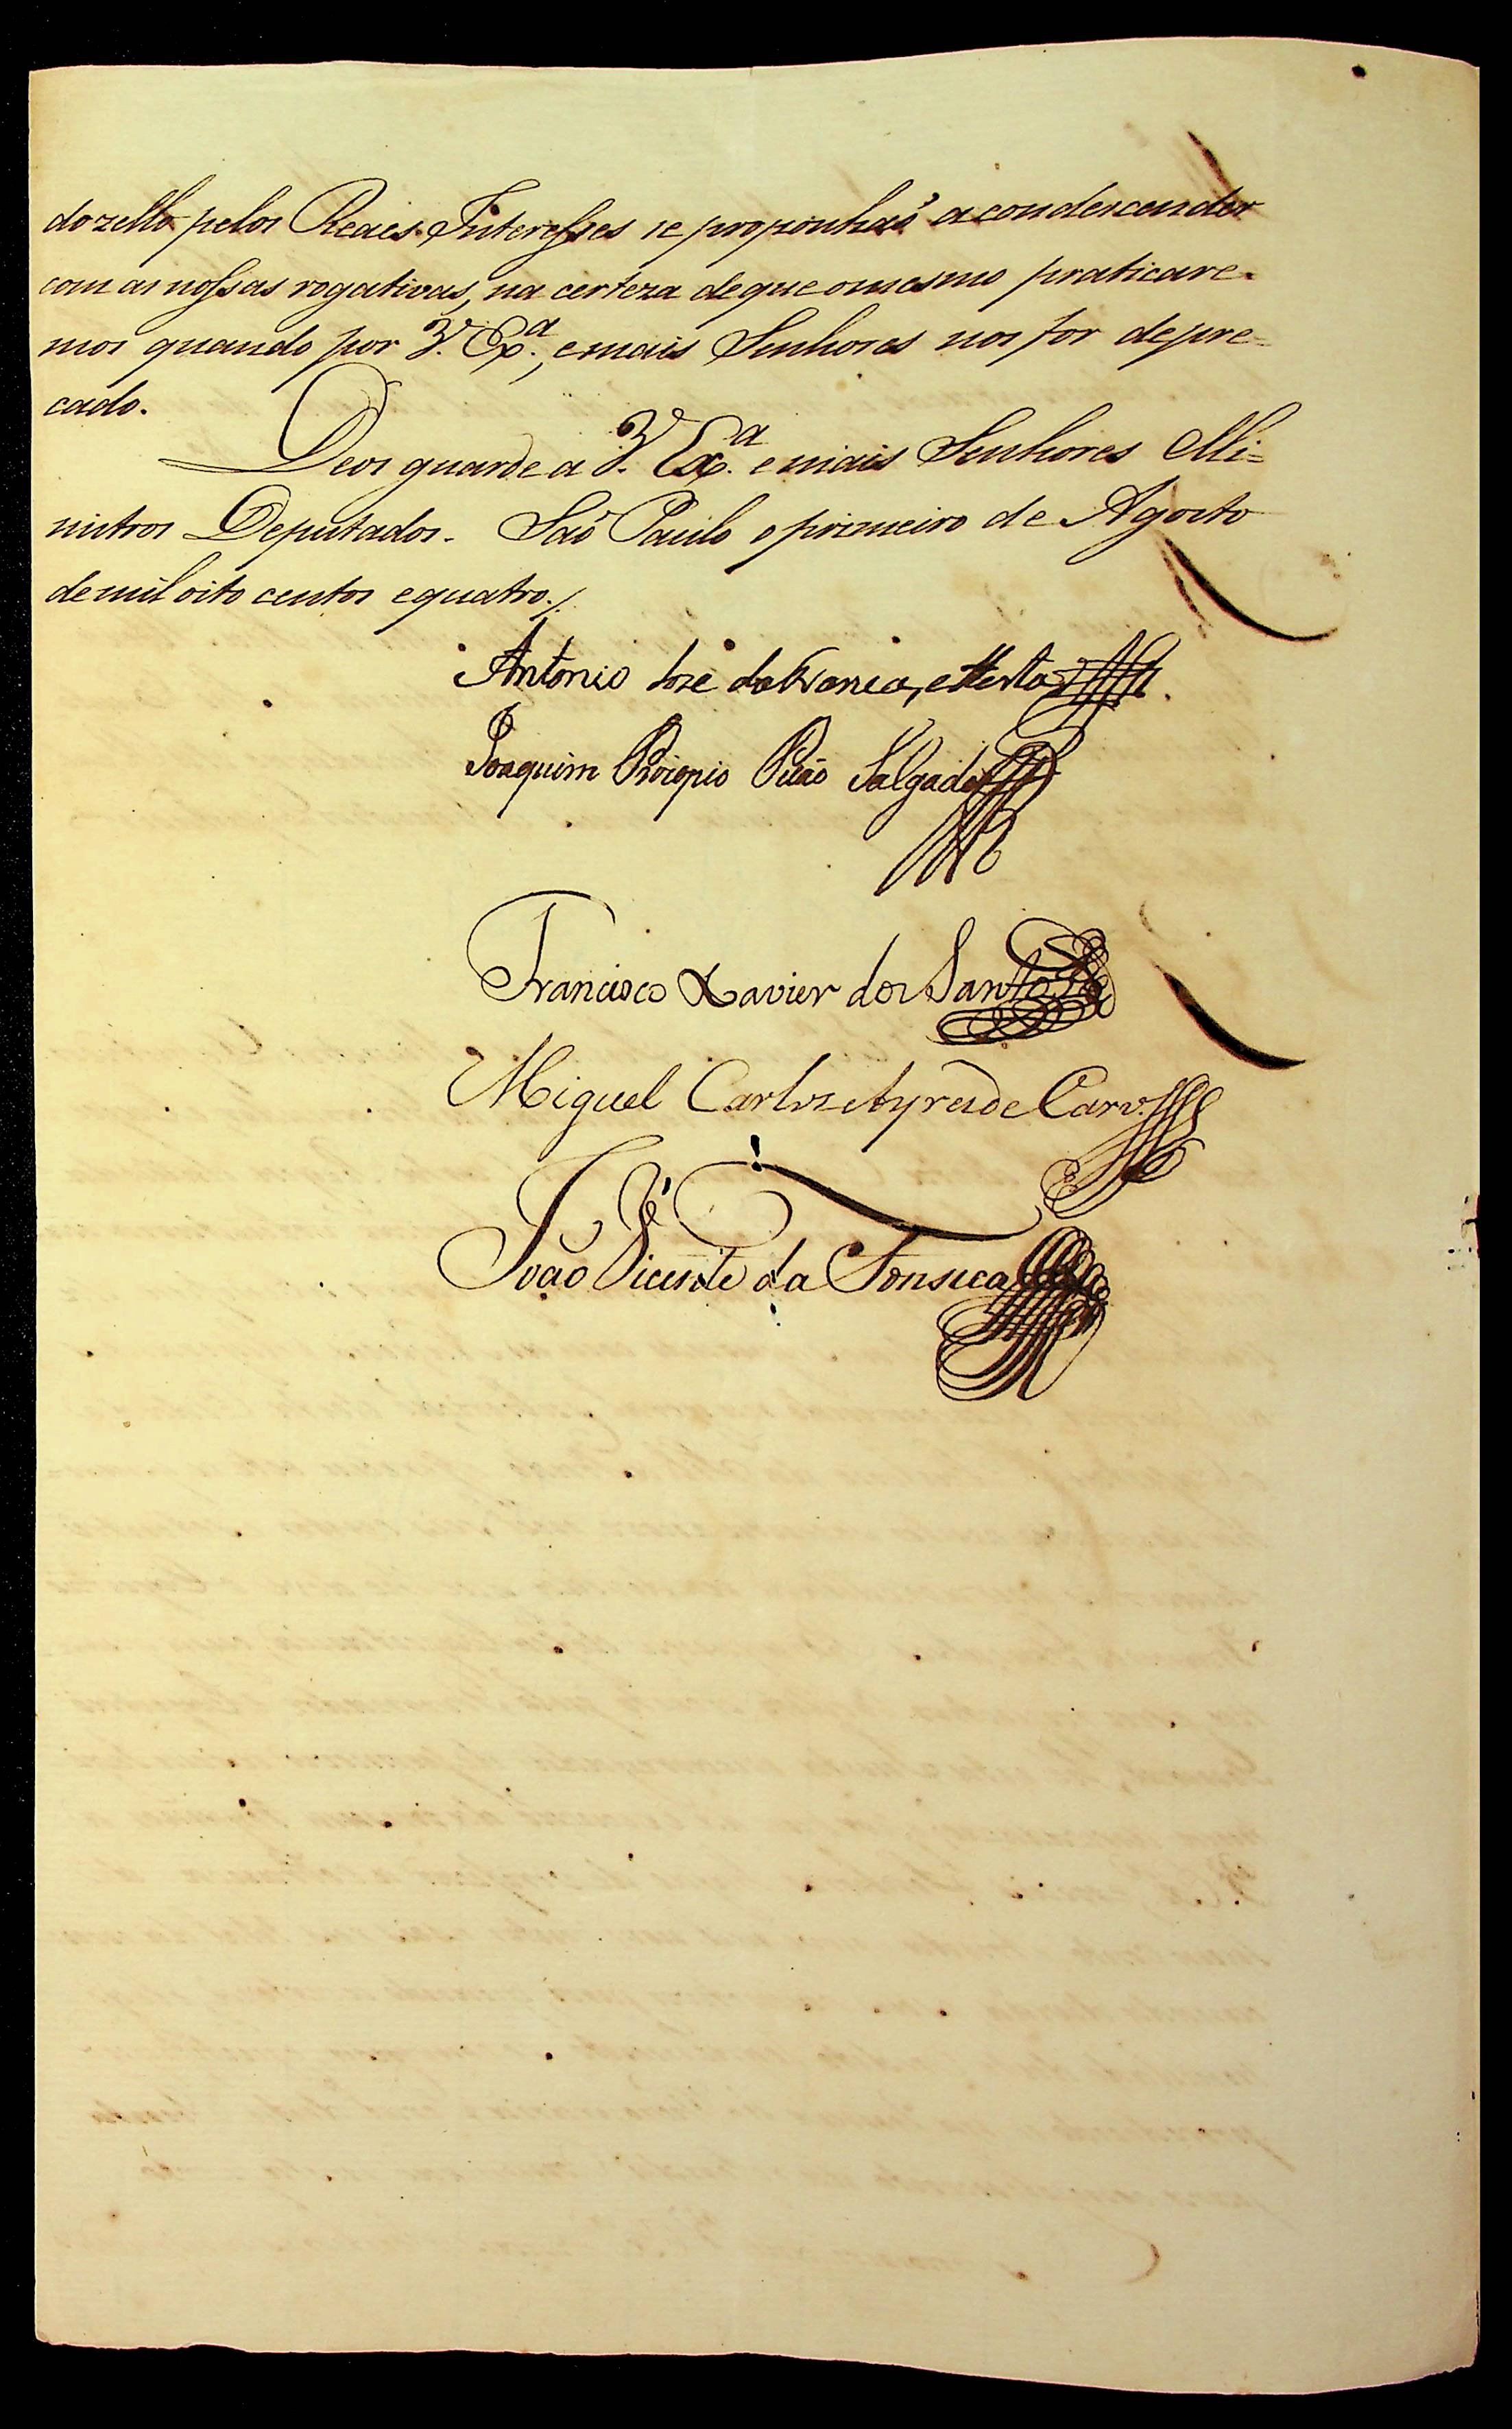 do zello pelos Reaes Interesses se proponhaõ a condescender
com as nossas rogativas, na certeza de que o mesmo praticare-
mos quando por V. Ex.ª, e mais Senhores nos for depre-
cado.
Deos guarde a V. Ex.ª e mais Senhores Mi-
nistros Deputados. Saõ Paulo o primeiro de Agosto
de mil oito centos e quatro./.
Antonio José da Franca, e Horta
Joaquim Procopio Picão Salgado
Francisco Xavier dos Santos
Miguel Carlos Ayres de Carv.º
João Vicente da Fonseca